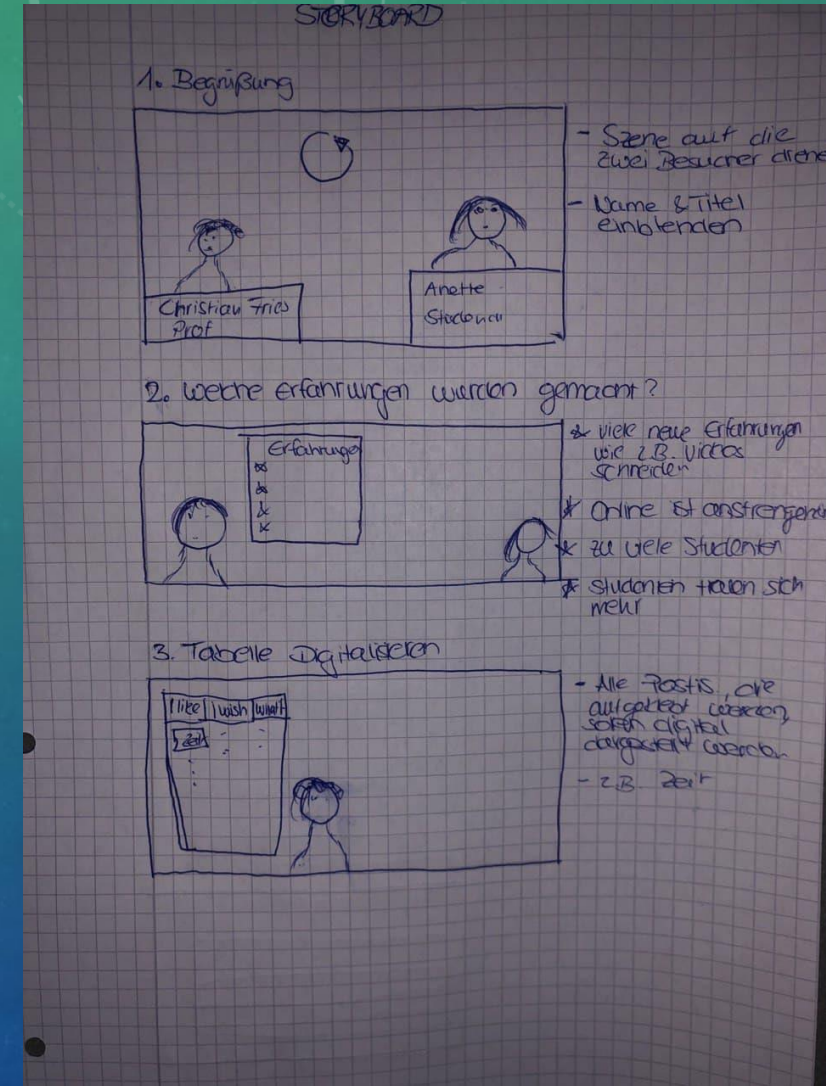 STORYBOARD
1. Begrüßung
- Szene auf die
zwei Besucher
- Name & Titel
einblenden
Christian Fries
Prof
Anette
2. Welche Erfahrungen wurden gemacht?
Erfahrunge
* viele neue Erfahrungen
wie z.B. Videos
schneiden
* Online ist anstrengend
* zu viele Studenten
* Studenten trauen sich
mehr
3. Tabelle Digitalisieren
I like | I wish | what if
Zeit
- Alle Postis, die
aufgeklebt werden,
sollen digital
dargestellt werden
- z.B. Zeit